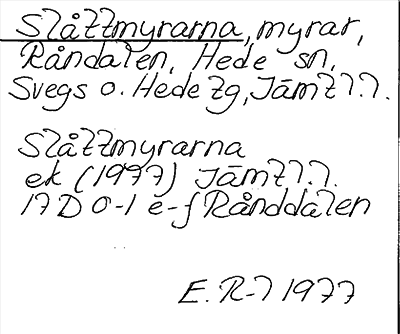 Slåttmyrarna, myrar,
Råndalen, Hede sn,
Svegs o. Hede tg, Jämtl.l.
Slåttmyrarna
ek (1977) Jämtl.l.
17 D 0-1 e-f Rånddalen
E. R-l 1977